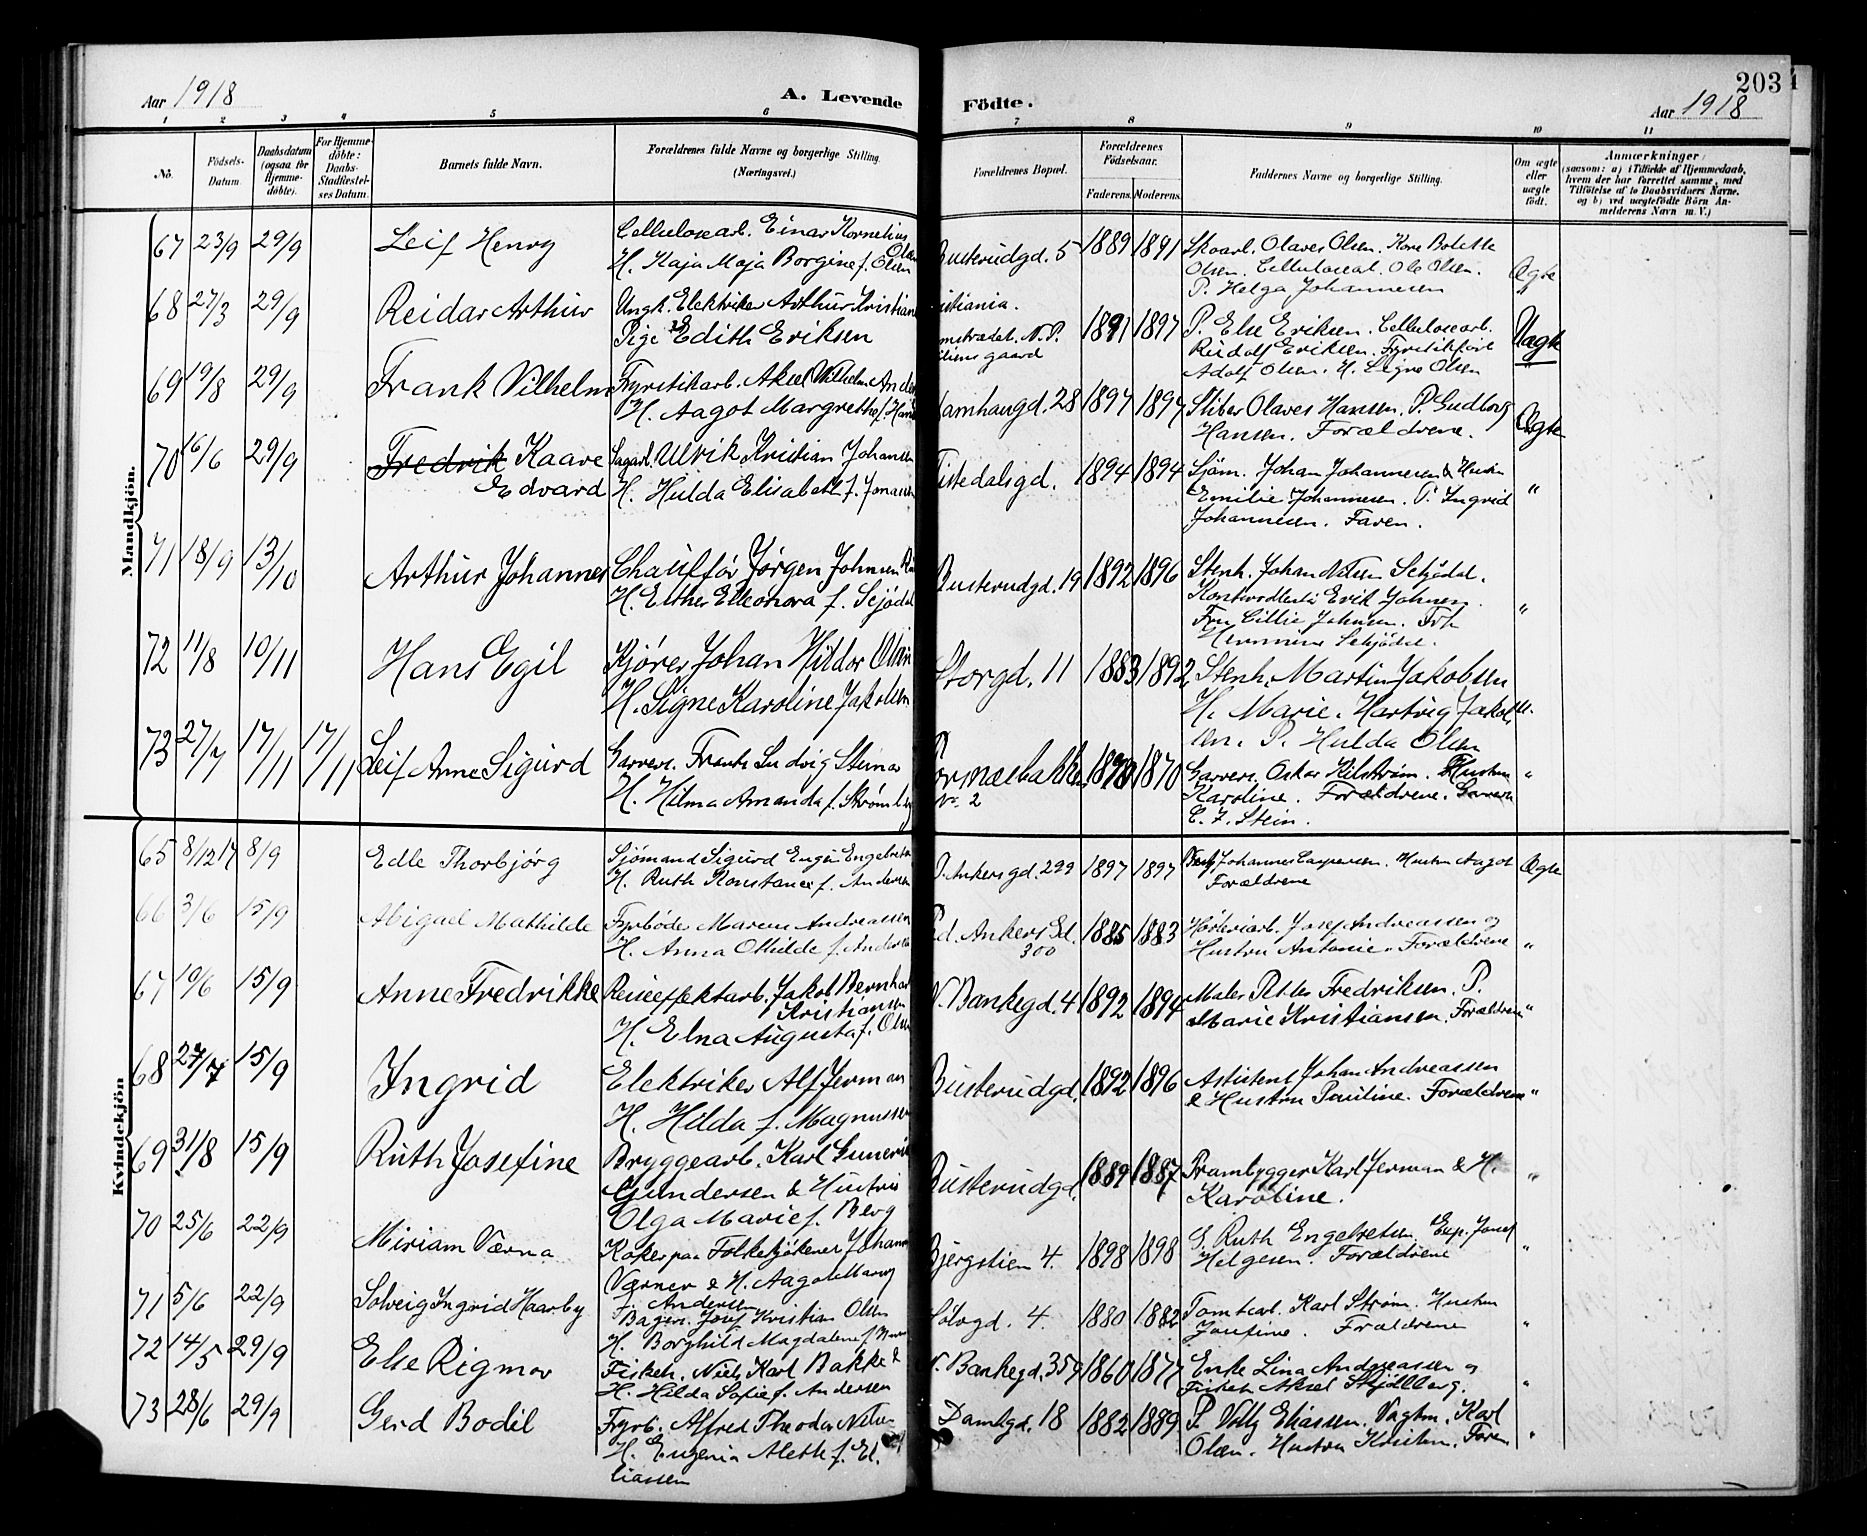 203
Aar 1918
A. Levende
Födte.
Aar 1918
1 2 3 4 5 6 7 8 9 10 11
No.
Födsels-
Datum.
Daabsdatum
(ogsaa for
Hjemme-
döbte).
For Hjemme-
döbte:
Daabs-
Stadfæstel-
ses Datum.
Barnets fulde Navn.
Forældrenes fulde Navne og borgerlige Stilling.
(Næringsvei.)
Forældrenes Bopæl.
Forældrenes
Födselsaar.
Faderens. Moderens.
Faddernes Navne og borgerlige Stilling.
Om ægte
eller
uægte
födt.
Anmærkninger
(saasom: a) i Tilfælde af Hjemmedaab,
hvem der har forrettet samme, med
Tilföielse af to Daabsvidners Navne.
og b) ved uægtefödte Börn An-
melderens Navn m. V.)
Mandkjön.
67 23/9 29/9 Leif Henry
Cellulosearb. Einar Kornelius Olsen
H. Kaja Maja Borgine f. Olsen
Busterudgd. 5 1889 1891
Skoarb. Olaves Olsen. Kone Bolette
Olsen. Cellulosearb. Ole Olsen.
P. Helga Johannesen
Ægte
68 27/3 29/9 Reidar Arthur
Ungk. Elektriker Arthur Kristian
Pige Edith Eriksen
istiania.
gaard
1891 1897
P. Else Eriksen. Cellulosearb.
Rudolf Eriksen. Fyrstikfört
Adolf Olsen. H. Signe Olsen
Uægte
69 19/8 29/9 Frank Vilhelm
Fyrstikarb. Aksel Wilhelm Ander
H. Aagot Margrethe f. Han
Damhaugd. 28 1897 1897
Sliber Olaves Hansen. P. Gudborg
Hansen. Forældrene.
Ægte
70 16/6 29/9 Fredrik Kaare
Edvard
Sagarb. Ulrik Kristian Johansen
H. Hulda Elisabeth f. Jonassen
Tistedalsgd. 1894 1894
Sjöm. Johan Johannesen & Hustru
Emilie Johannesen. P. Ingrid
Johannesen. Faren.
"
71 18/9 13/10 Arthur Johannes
Chauffør Jørgen Johnsen
H. Esther Elleonora f. Sejödal
Busterudgd. 19 1892 1896
Stenh. Johan Nilsen Sejödal.
Erik Johnsen.
Fru Cillie Johnsen. Frk
Sejödal.
"
72 11/8 10/11 Hans Egil
Kjører Johan Hildor Olsen
H. Signe Karoline Jakobsen
Storgd. 11 1883 1892
Stenh. Martin Jakobsen
H. Marie. Hartvig Jakob
sen. P. Hulda Olsen
"
73 27/7 17/11 17/11 Leif Arne Sigurd
Garver. Frants Ludvig Steiner
H. Hilma Amanda f. Strømberg
No. 2
1870
Garver. Oskar Kilstrøm. Hustru
Karoline. Forældrene. Garver
C. F. Stein.
"
Kvindekjön
65 8/12 17 8/9 Edle Thorbjörg
Sjömand Sigurd Eugen Engebretsen
H. Ruth Konstance f. Andersen
P. Ankersgd. 299 1897 1897
Johannes Caspersen. Hustru Aagot
Forældrene
Ægte
66 3/6 15/9 Abigael Mathilde
Fyrböder Marcus Andreassen
H. Anna Othilde f. Andersen
Pd. Ankers Gd.
300
1885 1883
Josef Andreassen og
Hustru Antonie. Forældrene
"
67 19/6 15/9 Anne Fredrikke
Reiseeffektarb. Jakob Bernhard
Kristiansen
H. Elna Augusta f. Olsen
V. Bankegd. 4 1892 1894
Maler Petter Fredriksen. P.
Marie Kristiansen. Forældrene
"
68 27/7 15/9 Ingrid
Elektriker Alf Jerman
H. Hilda f. Magnussen
Busterudgd. 1892 1896
Assistent Johan Andreassen
& Hustru Pauline. Forældrene
"
69 31/8 15/9 Ruth Josefine
Bryggearb. Karl Sunerik
Gundersen & Hustru
Olga Marie f. Berg
Busterudgd. 1889 1887
Prambygger Karl Jerman & H.
Karoline.
"
70 25/6 22/9 Miriam Værna
Koker paa Folkekjökener Johann
Værner & H. Aagot Mary
f. Andersen
Bjergstien 4. 1898 1898
G. Ruth Engebretsen. Exp. Josef
Helgesen. Forældrene
"
71 5/6 22/9 Solveig Ingrid Haarby
Bager. Josef Kristian Olsen
H. Borghild Magdalene f.
4. 1880 1882
Tomtearb. Karl Strøm. Hustru
Josefine. Forældrene
"
72 14/5 29/9 Else Rigmor
Fiskeh. Niels Karl Bakke &
H. Hilda Sofie f. Andersen
V. Bankegd. 359 1860 1877
Enke Lina Andreassen og
Fiskeh Aksel Skjölberg.
"
73 28/6 29/9 Gerd Bodil
Fyrb. Alfred Theodor Nilsen
H. Eugenia Aleth f. El.
liassen
Damgd. 18 1882 1889
P. Volly Eliassen. Vagtm. Karl
Olsen. Hustru Kristin. Faren
"